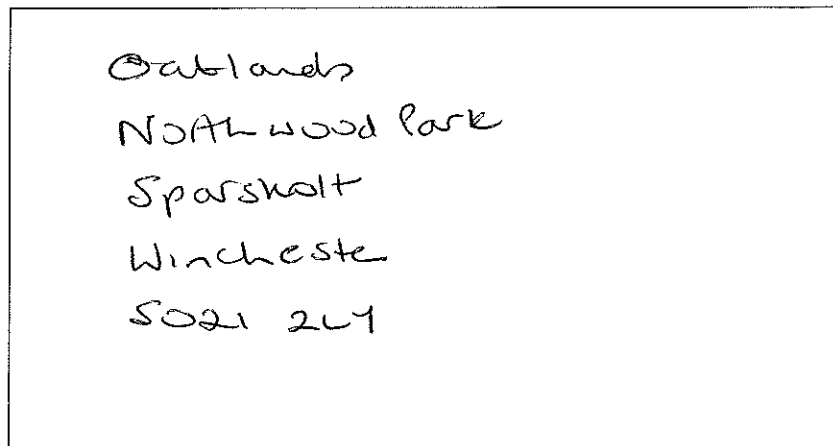 Oaklands
Northwood Park
Sparsholt
Winchester
SO21 2LY